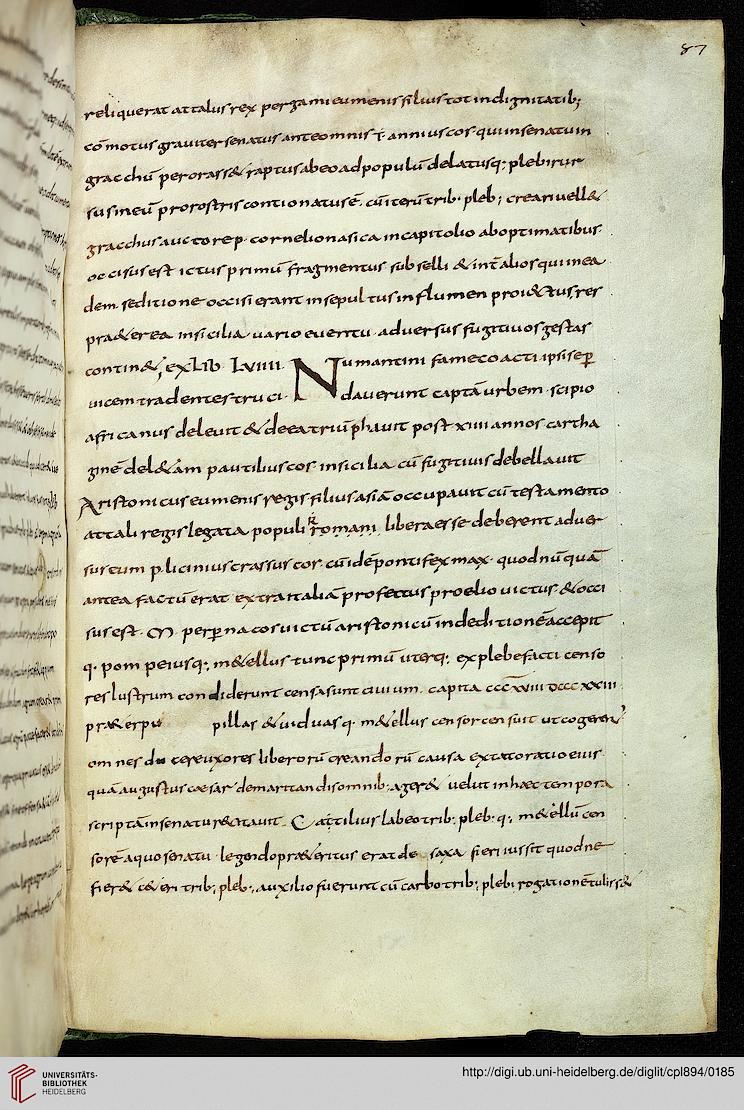 87
reliquerat attalus rex pergami eumenis filius tot indignitatib;
cōmotus grauiter senatus ante omnis t· annius cos· qui in senatu in
gracchū perorass& raptus ab eo ad populū delatusq; plebi rur
sus in eū pro rostris contionatus ē· cū iterū trib· pleb; creari uell&
gracchus auctore p· cornelio nasica in capitolio ab optimatibus
occisus est ictus primū fragmentus subselli & int̄ alios qui in ea
dem seditione occisi erant insepultus in flumen proi&tus, res
pra&erea in sicilia uario euentu aduersus fugitiuos gestas
contin&, ex lib· LVIIII· Numantini fame coacti ipsi se p̄
uicem tradentes truci dauerunt captā urbem scipio
africanus deleuit & de ea triūphauit post xiiii annos cartha
ginē del&am p autilius cos in sicilia cū fugitiuis debellauit
Aristonicus eumenis regis filius asiā occupauit cū testamento
attali regis legata populi romani libera esse deberent aduer
sus eum p· licinius crassus cos· cū idē pontifex max· quod nūquā
antea factū erat extra italiā profectus proelio uictus & occi
sus est· M· perp̄na cos uictū aristonicū in deditionē accepit
q· pompeiusq; m&ellus tunc primū uterq; ex plebe facti censo
res lustrum condiderunt censa sunt ciuium capita cccxviii dcccxxiii
pra&er pu pillas & uiduas q· m&ellus censor censuit ut cogeren
omnes ducere uxores liberorū creandorū causa extat oratio eius
quā augustus caesar de maritandis omnib· ager& uelut in haec tempora
scriptā in senatu recitauit C attilius labeo trib· pleb· q; m&ellū cen
sorē a quo senatu legendo pra&eritus erat de saxa fieri iussit quod ne
fier& c&eri trib; pleb; auxilio fuerunt cū carbo trib; plebi rogationē tuliss&
UNIVERSITÄTS-
BIBLIOTHEK
HEIDELBERG
http://digi.ub.uni-heidelberg.de/diglit/cpl894/0185